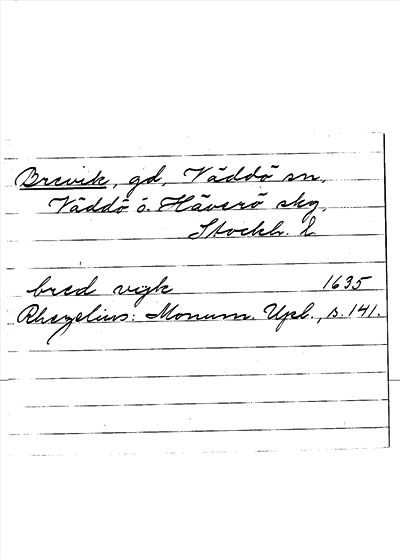 Brevik, gd, Väddö sn,
Väddö o. Häverö skg,
Stockh. l.
bred vijk 1635
Rhezelius: Monum. Upl., s. 141.